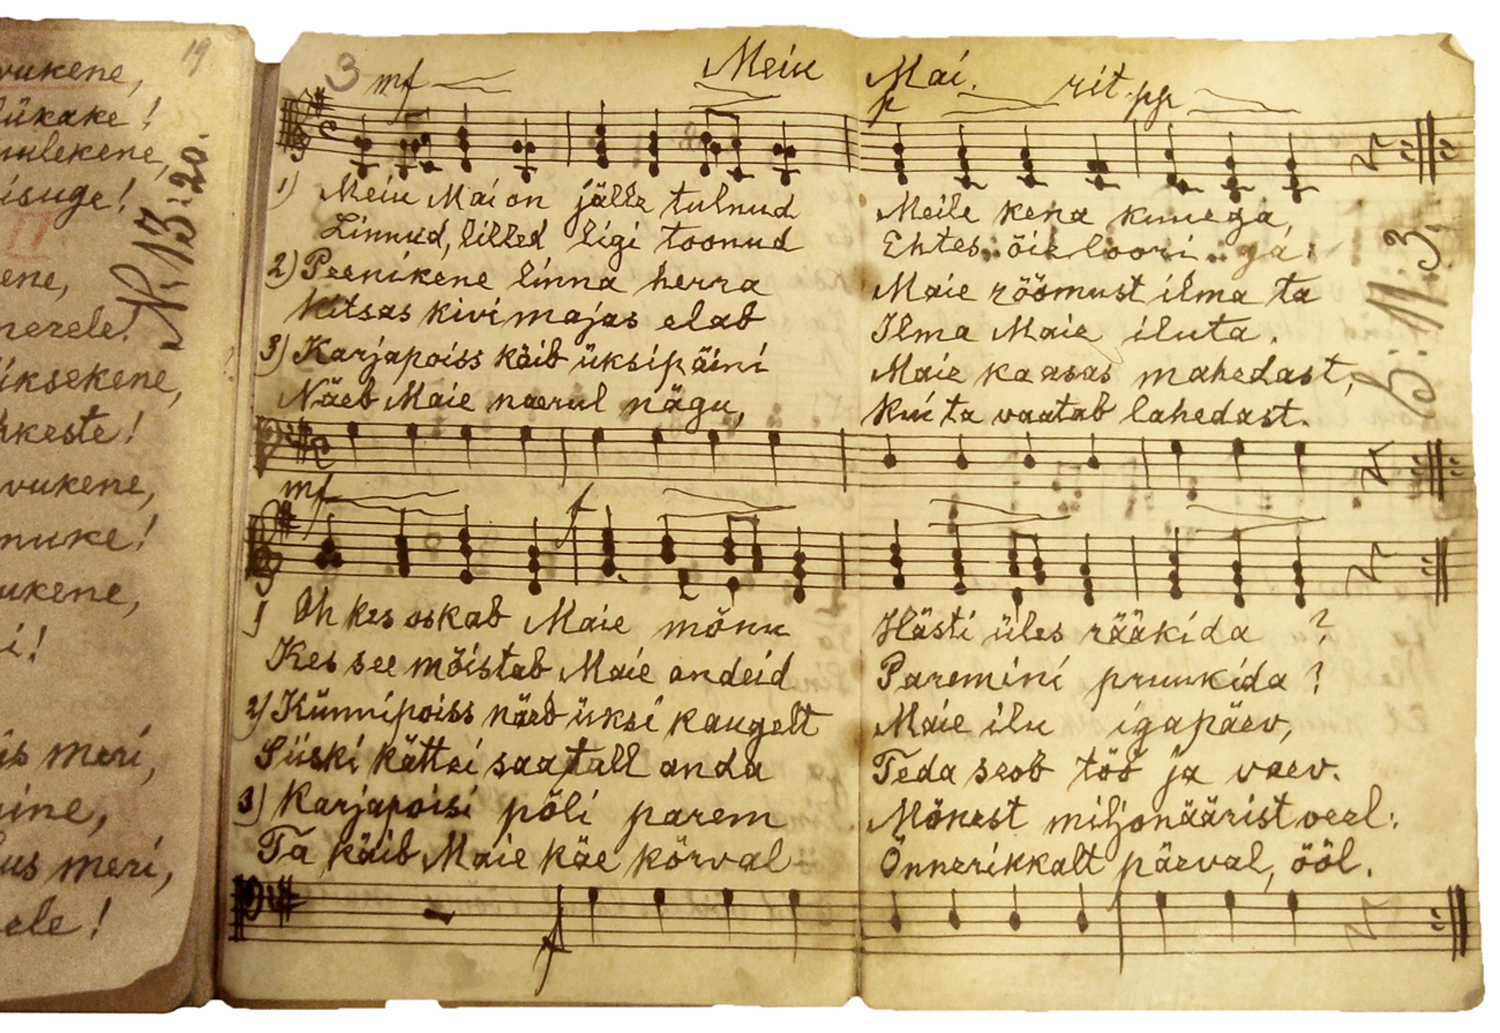 19
vukene,
ükake!
uulekene,
isuge!
ene,
nerele!
iksekene,
hkeste!
vukene,
nuke!
ukene,
i!
is meri,
ine,
us meri,
ele!
Nr. 13:20.
3 mf Meiu Mai. p rit. pp
1) Meiu Mai on jälle tulnud Meile kena kuuega,
Linnud, lilled ligi toonud Ehtes õieloori..ga:
2) Peenikene linna herra Maie rõõmust ilma ta
Kitsas kivi majas elab Ilma Maie iluta.
3) Karjapoiss käib üksipäini Maie kaasas mahedast,
Näeb Maie naerul nägu, Kui ta vaatab lahedast.
mf f
1 Oh kes oskab Maie mõnu Hästi üles rääkida ?
Kes see mõistab Maie andeid Paremini pruukida ?
2) Künnipoiss näeb üksi kaugelt Maie ilu igapäev,
Siiski kättei saa tall anda Teda seob töö ja vaev.
3) Karjapoisi põli parem Mõnest miljonäärist veel:
Ta käib Maie käe kõrval Õnnerikkalt päeval, ööl.
f